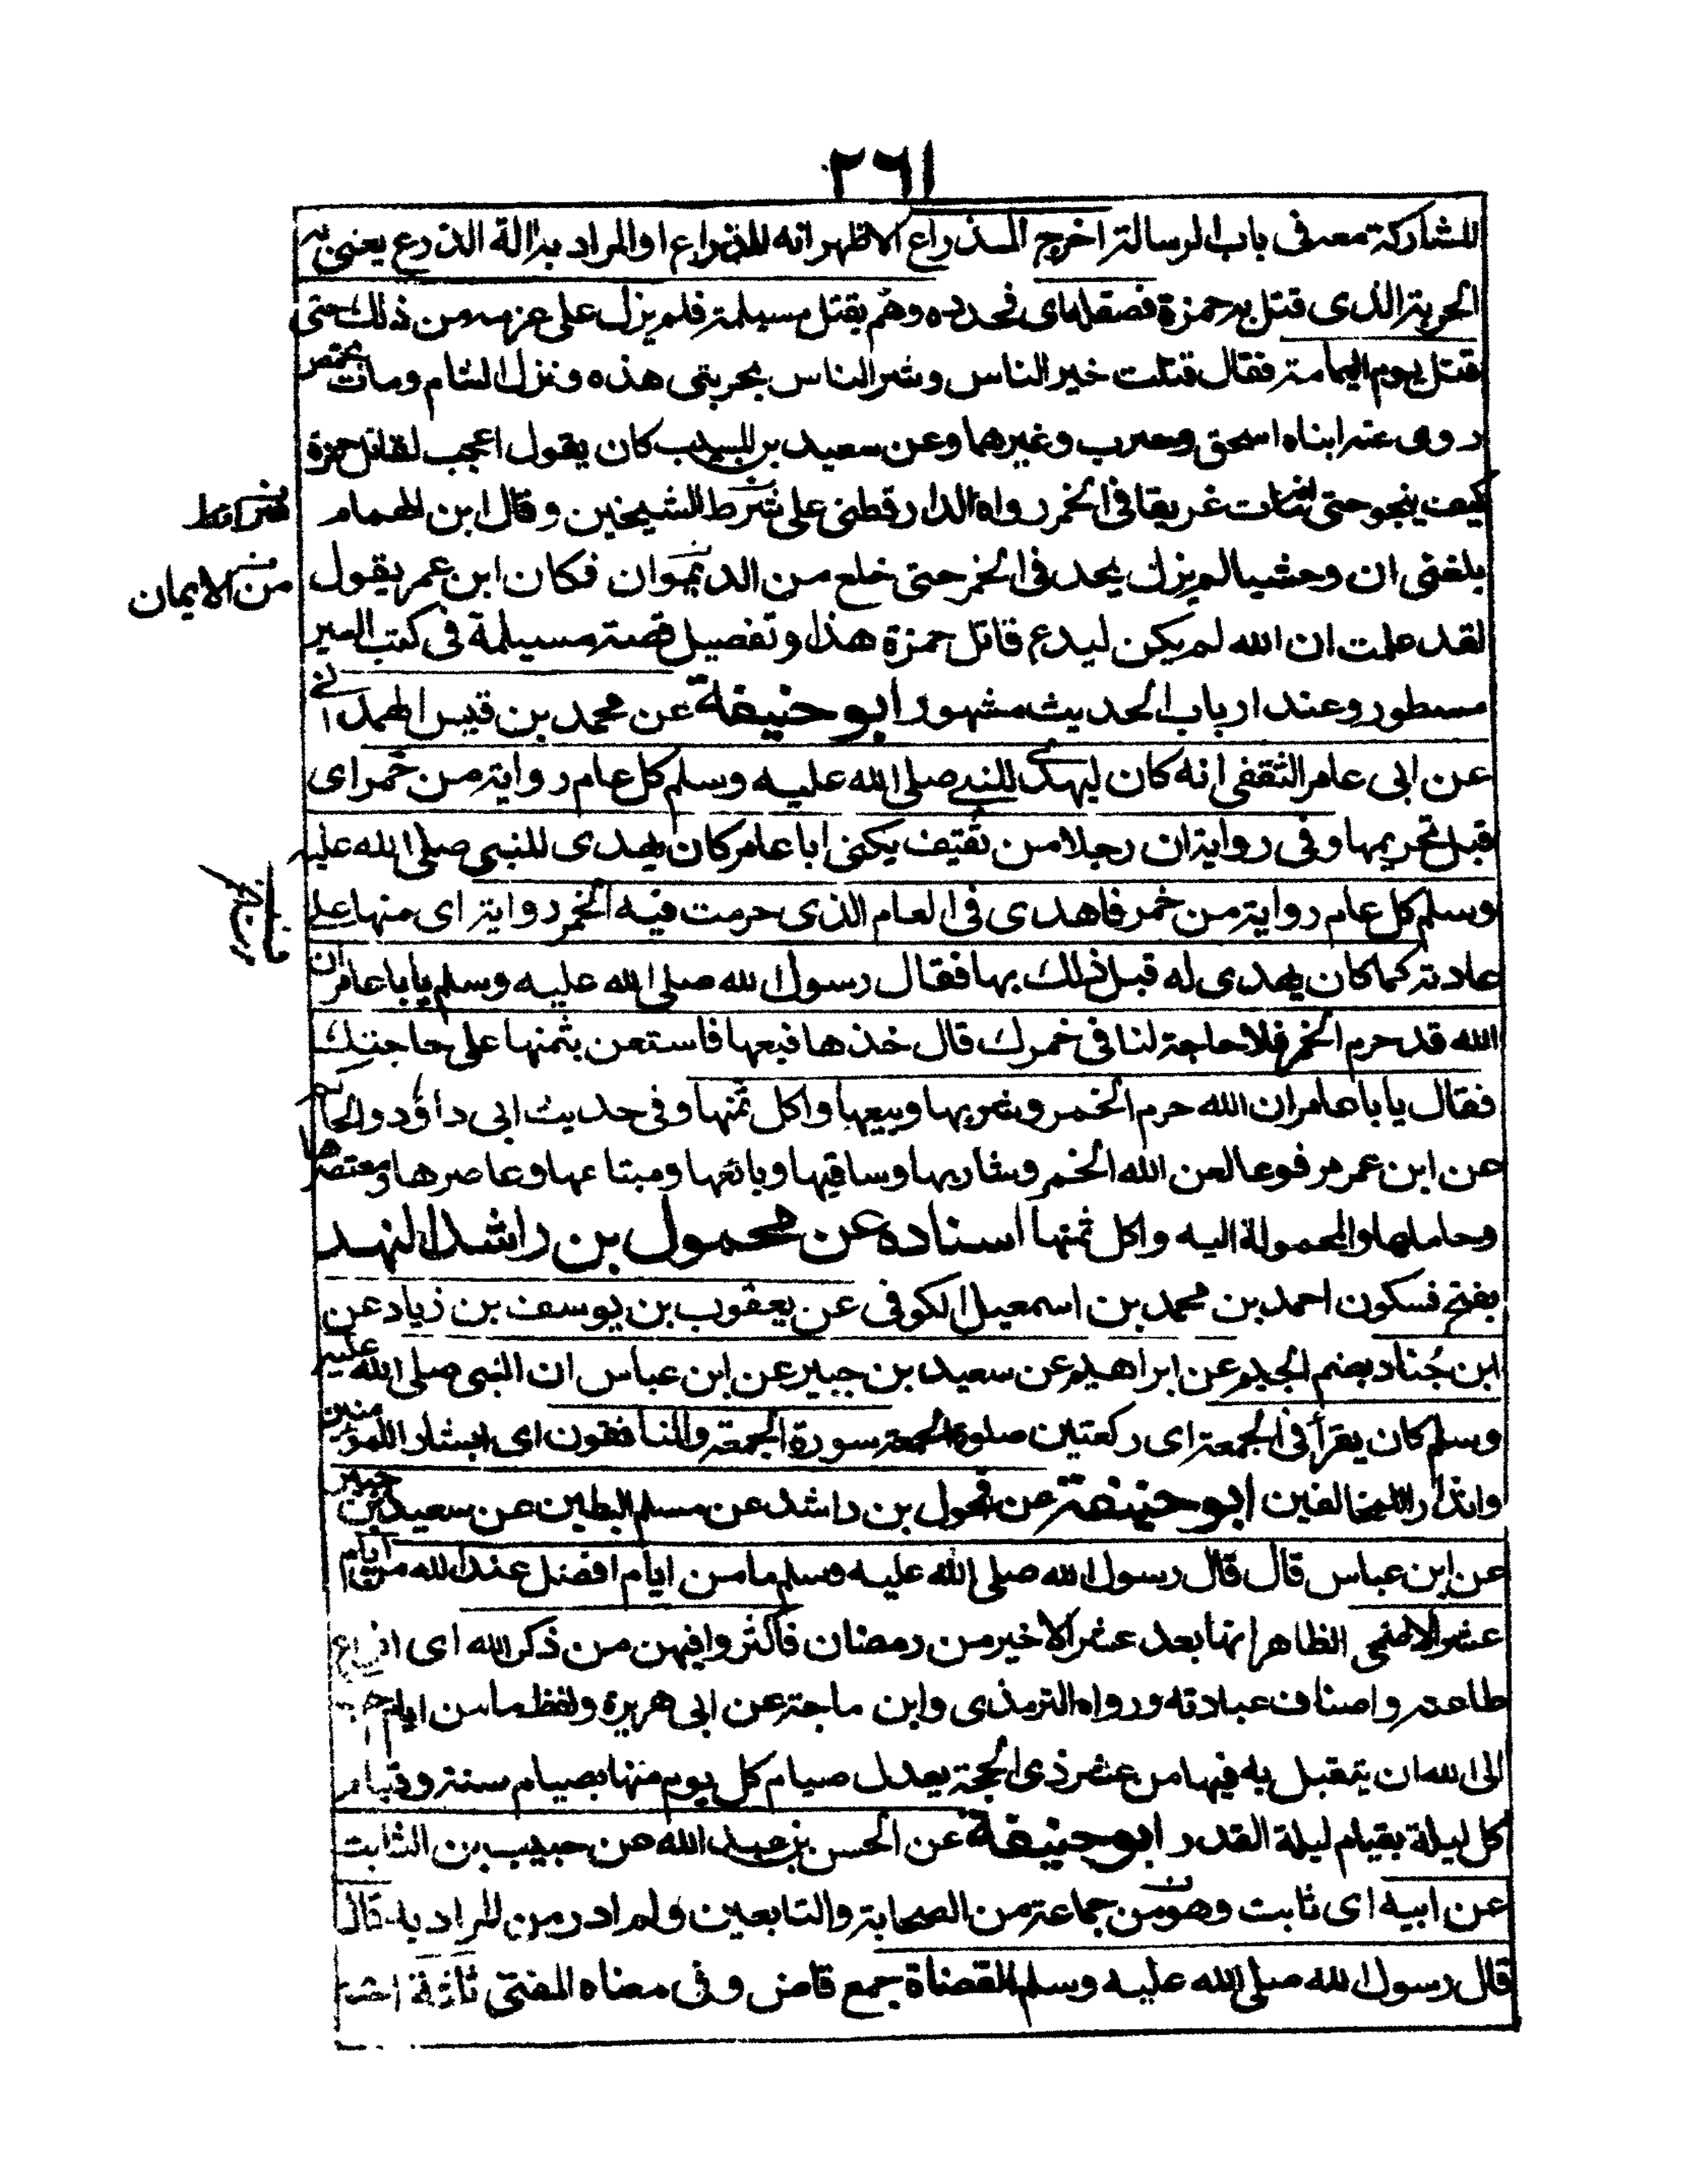 ٢٦١
للمشاركة معه فى باب الرسالة اخرج المذراع الاظهر انه للذراع او المراد به الة الذرع يعنى به
الحربة الذى قتل به حمزة فصقلها اى فحدده وهم بقتل مسيلمة فلم يزل على عزمه من ذلك حتى
قتل يوم اليمامة فقال قتلت خير الناس وشر الناس بحربتى هذه ونزل الشام ومات بحمص
روى عنه ابناه اسحق وحرب وغيرهما وعن سعيد بن المسيب كان يقول اعجب لقاتل حمزة
كيف ينجو حتى انه مات غريقا فى الخمر رواه الدارقطنى على شرط الشيخين وقال ابن الهمام
بلغنى ان وحشيا لم يزل يحد فى الخمر حتى خلع من الديوان فكان ابن عمر يقول
من الايمان
لقد علمت ان الله لم يكن ليدع قاتل حمزة هذا وتفصيل قصة مسيلمة فى كتب السير
مسطور وعند ارباب الحديث مشهور ابو حنيفة عن محمد بن قيس الهمدانى
عن ابى عامر الثقفى انه كان ليهدى للنبى صلى الله عليه وسلم كل عام رواية من خمر اى
قبل تحريمها وفى رواية ان رجلا من ثقيف يكنى ابا عامر كان يهدى للنبى صلى الله عليه
وسلم كل عام رواية من خمر فاهدى فى العام الذى حرمت فيه الخمر رواية اى منها على
عادته كما كان يهدى له قبل ذلك بها فقال رسول الله صلى الله عليه وسلم يابا عامر ان
الله قد حرم الخمر فلا حاجة لنا فى خمرك قال خذها فبعها فاستعن بثمنها على حاجتك
فقال يابا عامر ان الله حرم الخمر وشربها وبيعها واكل ثمنها وفى حديث ابى داؤد والحاكم
عن ابن عمر مرفوعا لعن الله الخمر وشاربها وساقيها وبائعها ومبتاعها وعاصرها ومعتصرها
وحاملها والمحمولة اليه واكل ثمنها اسناده عن محمول بن راشد النهد
بفتح فسكون احمد بن محمد بن اسمعيل الكوفى عن يعقوب بن يوسف بن زياد عن
ابن جُناد بضم الجيم عن ابراهيم عن سعيد بن جبير عن ابن عباس ان النبى صلى الله عليه
وسلم كان يقرأ فى الجمعة اى ركعتين صلوة الجمعة سورة الجمعة والمنافقون اى ابشار اللمؤمنين
وانذار اللمخالفين ابو حنيفة عن محول بن راشد عن مسلم البطين عن سعيد بن جبير
عن ابن عباس قال قال رسول الله صلى الله عليه وسلم ما من ايام افضل عند الله من ايام
عشر الاضحى الظاهر انها بعد عشر الاخير من رمضان فاكثروا فيهن من ذكر الله اى انواع
طاعته واصناف عبادته ورواه الترمذى وابن ماجة عن ابى هريرة ولفظ ما من ايام
الى الله ان يتقبل به فيها من عشر ذى الحجة يعدل صيام كل يوم منها بصيام سنة وقيام
كل ليلة بقيام ليلة القدر ابو حنيفة عن الحسن بن عبد الله عن حبيب بن الثابت
عن ابيه اى ثابت وهو من جماعة من الصحابة والتابعين ولم ادر من المراد به قال
قال رسول الله صلى الله عليه وسلم القضاة جمع قاض وفى معناه المفتى ثلثة